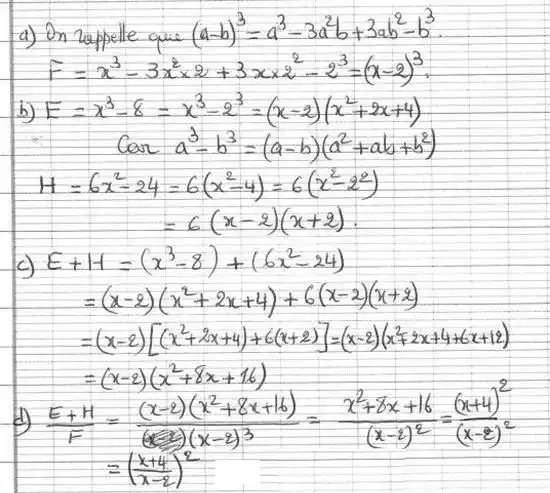 a) On rappelle que (a-b)³ = a³ - 3a²b + 3ab² - b³.
F = x³ - 3x²×2 + 3x×2² - 2³ = (x-2)³.
b) E = x³ - 8 = x³ - 2³ = (x-2)(x²+2x+4)
Car a³ - b³ = (a-b)(a²+ab+b²)
H = 6x² - 24 = 6(x²-4) = 6(x²-2²)
= 6(x-2)(x+2).
c) E+H = (x³-8) + (6x²-24)
= (x-2)(x²+2x+4) + 6(x-2)(x+2)
= (x-2)[(x²+2x+4)+6(x+2)] = (x-2)(x²+2x+4+6x+12)
= (x-2)(x²+8x+16)
d) (E+H)/F = (x-2)(x²+8x+16)/(x-2)³ = (x²+8x+16)/(x-2)² = (x+4)²/(x-2)²
= ((x+4)/(x-2))²